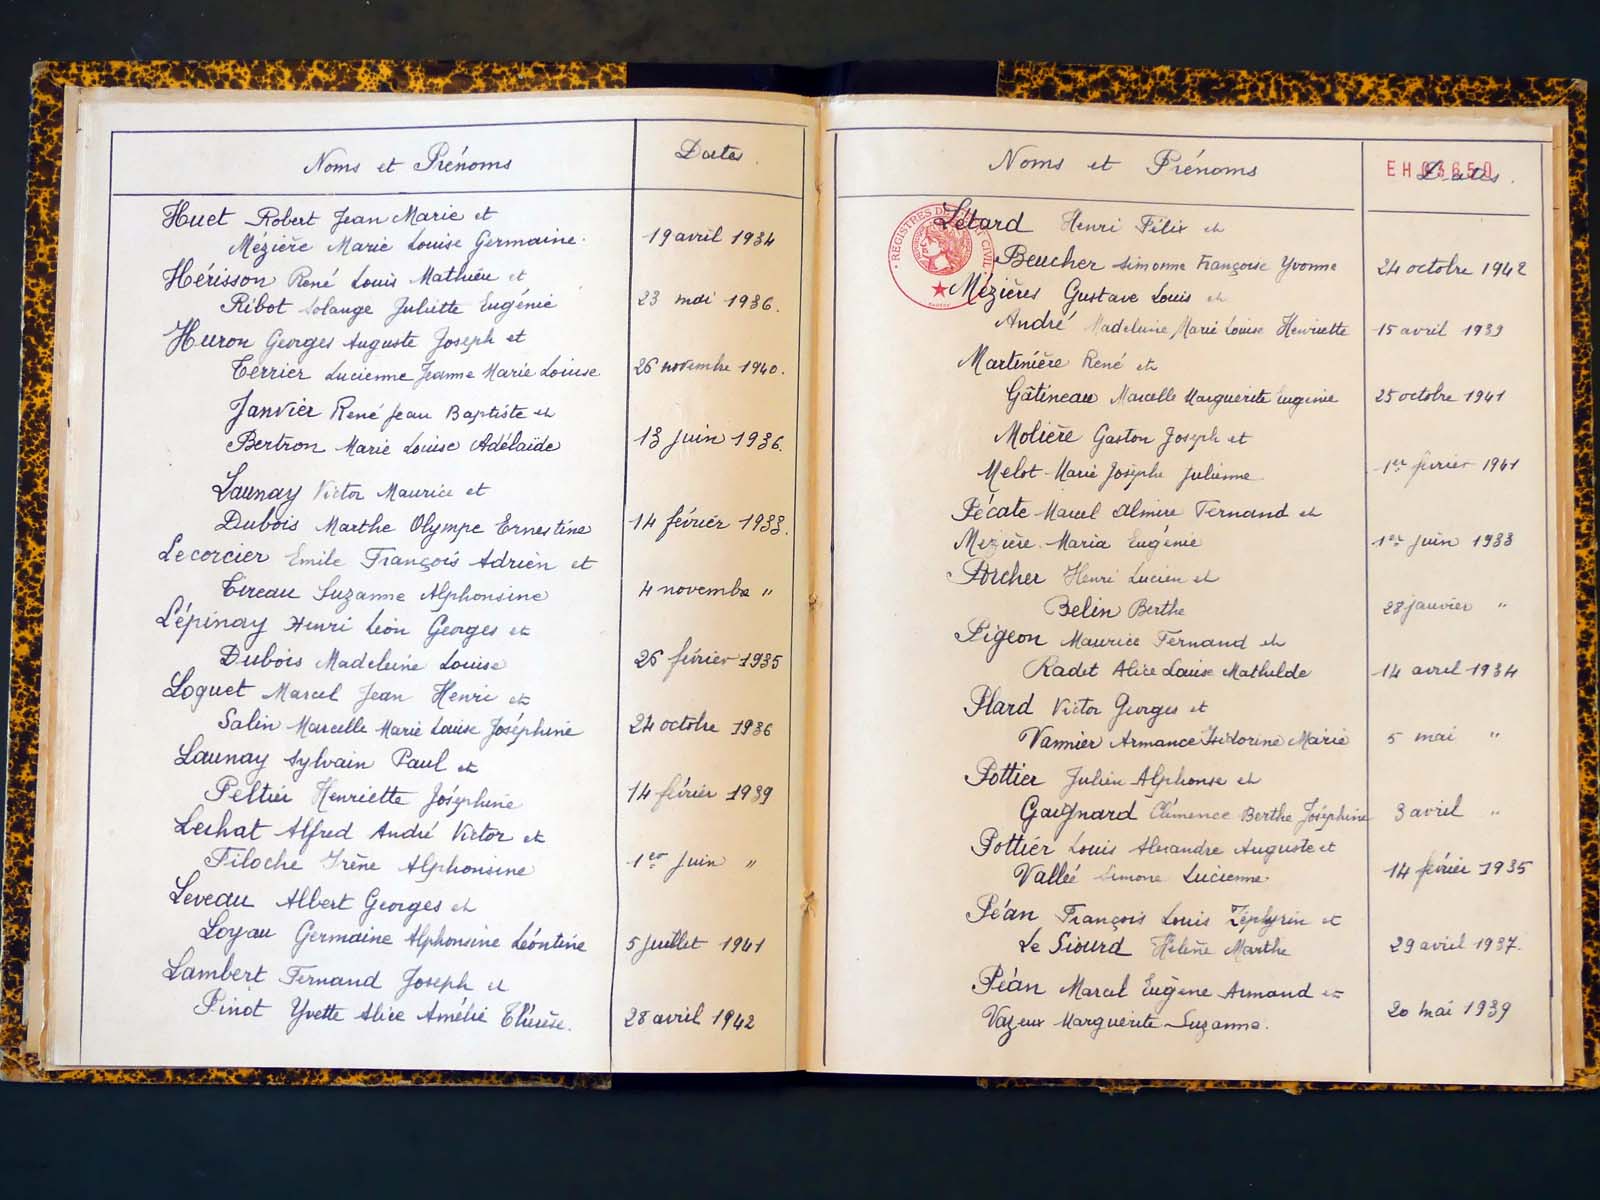 Noms et Prénoms
Dates
Huet Robert Jean Marie et
Mézière Marie Louise Germaine.
19 avril 1934
Hérisson René Louis Mathieu et
Ribot Solange Juliette Eugénie
23 mai 1936.
Huron Georges Auguste Joseph et
Terrier Lucienne Jeanne Marie Louise
26 novembre 1940.
Janvier René Jean Baptiste et
Bertron Marie Louise Adélaïde
13 juin 1936.
Launay Victor Maurice et
Dubois Marthe Olympe Ernestine
14 février 1933.
Lecorcier Emile François Adrien et
Tireau Suzanne Alphonsine
4 novembre "
Lépinay Henri Léon Georges et
Dubois Madeleine Louise
26 février 1935
Loguet Marcel Jean Henri et
Salin Marcelle Marie Louise Joséphine
24 octobre 1936
Launay Sylvain Paul et
Peltier Henriette Joséphine
14 février 1939
Lechat Alfred André Victor et
Filoche Irène Alphonsine
1er juin "
Leveau Albert Georges et
Loyau Germaine Alphonsine Léontine
5 juillet 1941
Lambert Fernand Joseph et
Pinot Yvette Alice Amélie Thérèse.
28 avril 1942
Noms et Prénoms
EH03650
Dates.
REGISTRES DE L'ETAT CIVIL
Létard Henri Félix et
Beucher Simonne Françoise Yvonne
24 octobre 1942
Mézières Gustave Louis et
André Madeleine Marie Louise Henriette
15 avril 1939
Martinière René et
Gâtineau Marcelle Marguerite Eugénie
25 octobre 1941
Molière Gaston Joseph et
Melot Marie Josèphe Julienne
1er février 1941
Pécate Marcel Almire Fernand et
Mézière Maria Eugénie
1er juin 1933
Porcher Henri Lucien et
Belin Berthe
28 janvier "
Pigeon Maurice Fernand et
Radet Alice Louise Mathilde
14 avril 1934
Plard Victor Georges et
Vannier Armance Isidorine Marie
5 mai "
Pottier Julien Alphonse et
Gaignard Clémence Berthe Joséphine
3 avril "
Pottier Louis Alexandre Auguste et
Vallée Simone Lucienne.
14 février 1935
Péan François Louis Zéphyrin et
Le Siourd Hélène Marthe
29 avril 1937.
Péan Marcel Eugène Armand et
Vazeux Marguerite Suzanne.
20 mai 1939